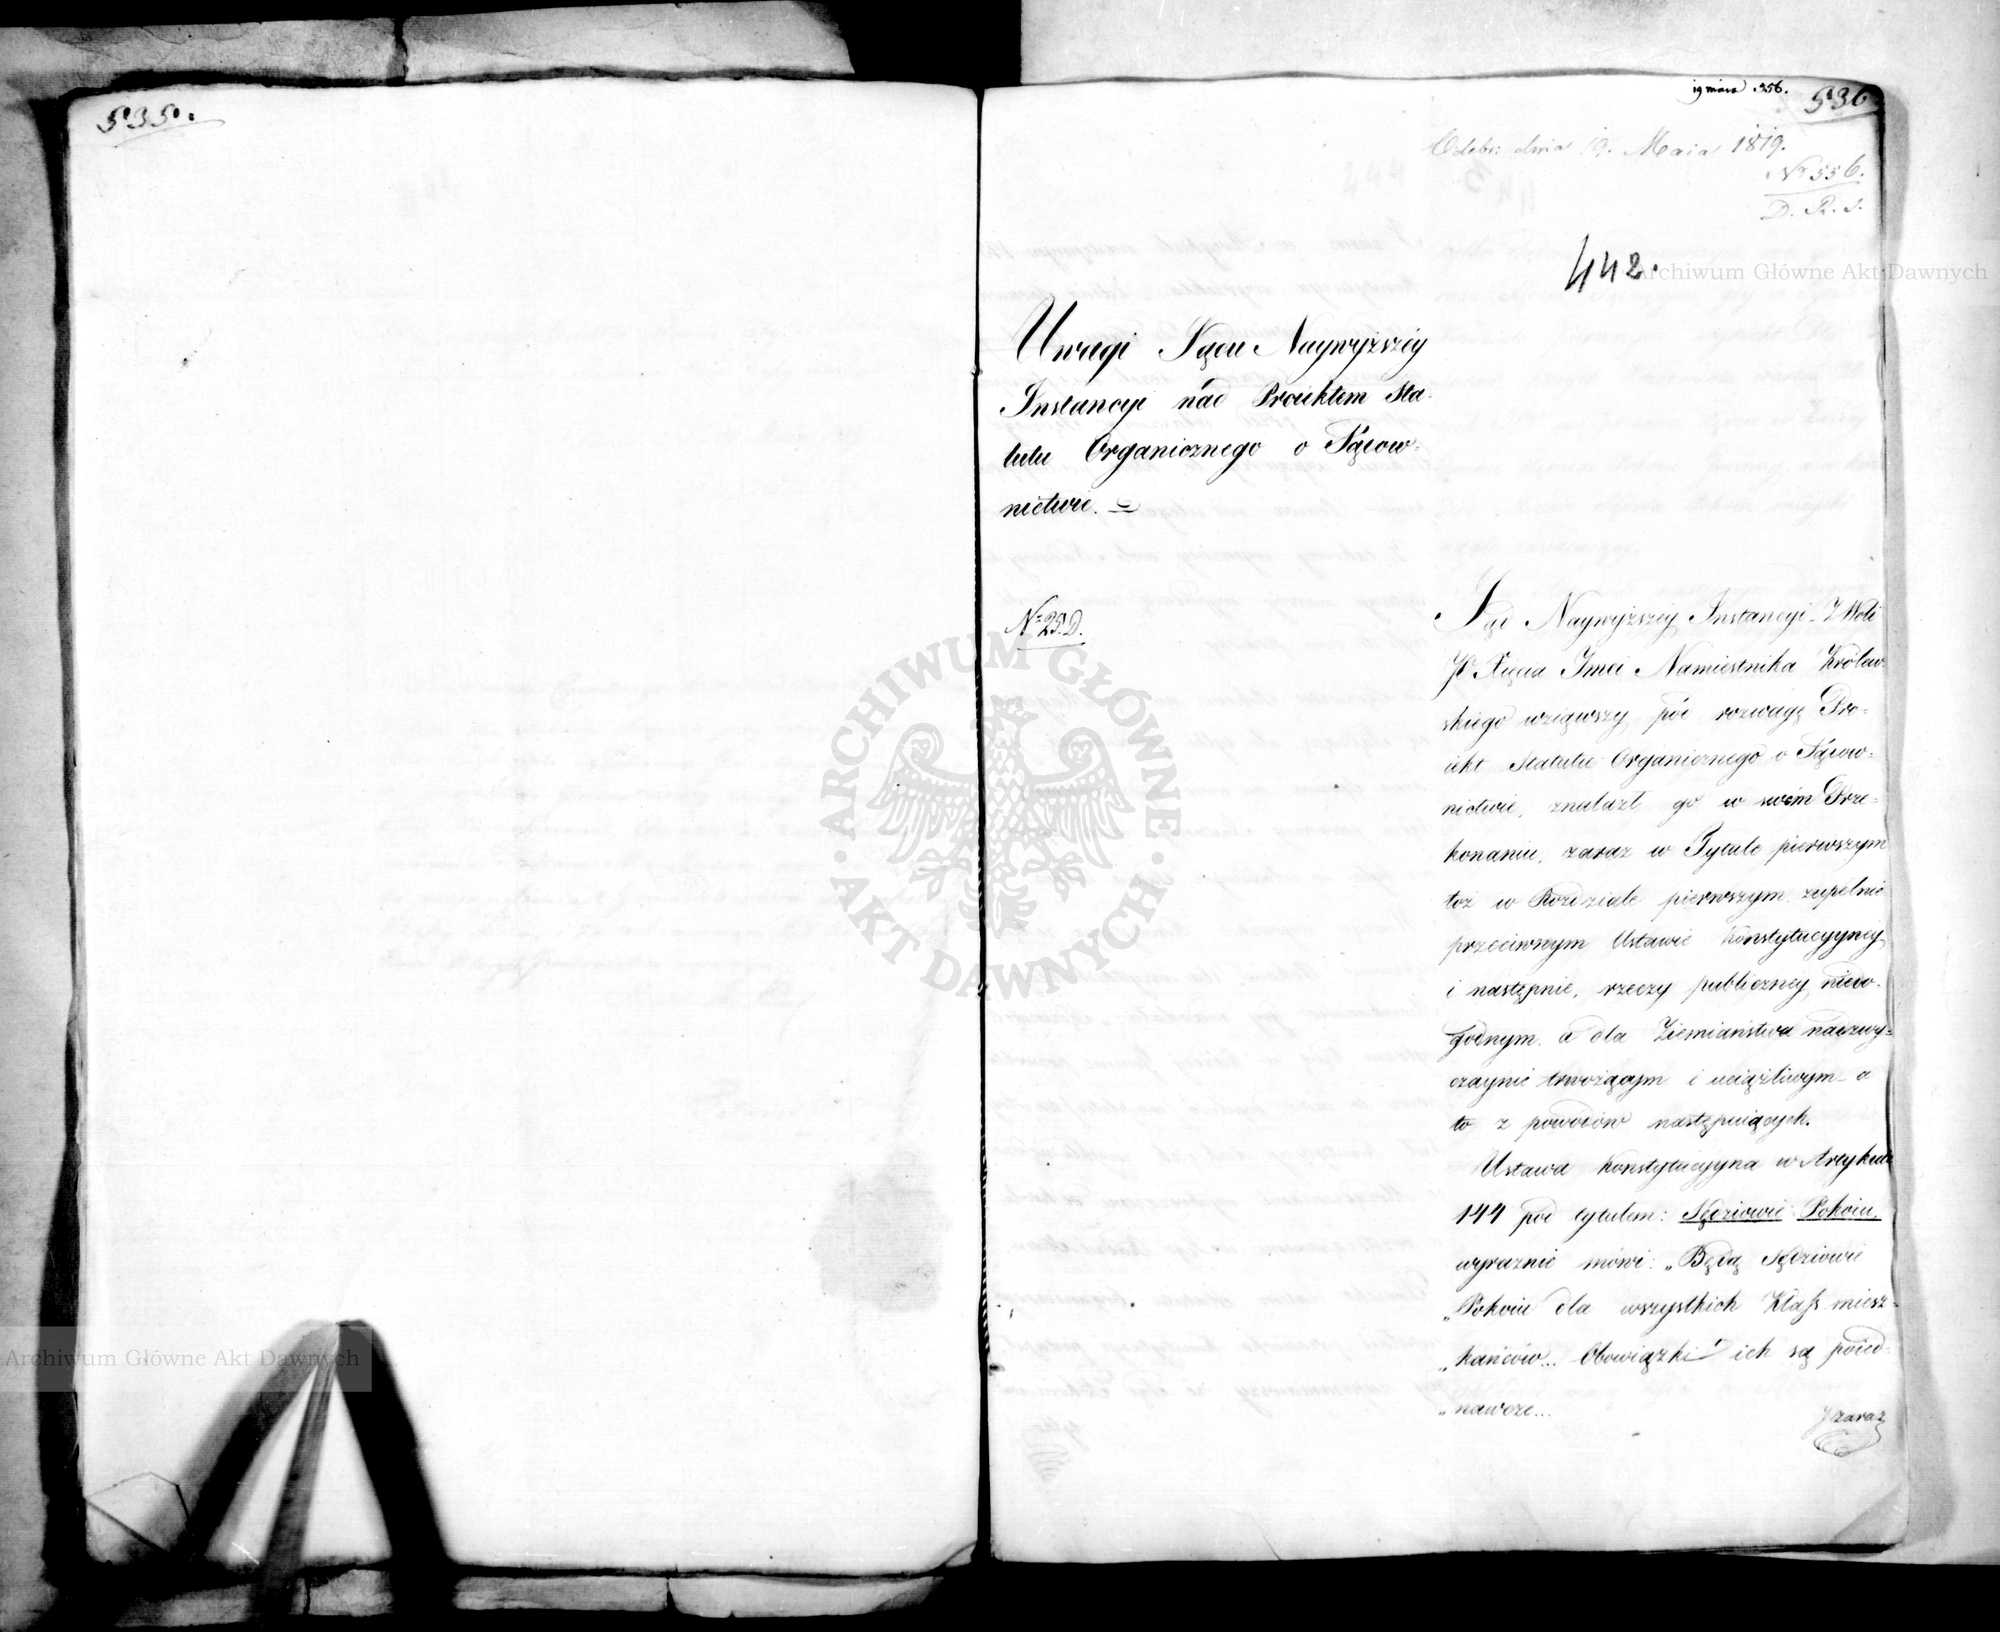 535.
19 maia .956.
536.
Odebr: dnia 19. Maia 1819.
Nr 556.
D. R. S.
442.
Archiwum Główne Akt Dawnych
Uwagi Sądu Naywyższéy
Instancyi nad Proiektem Sta-
tutu Organicznego o Sądow-
nictwie.
Nr 25.D.
Sąd Naywyższéy Instancyi z Woli
JO Xięcia Jmci Namiestnika Królew
skiego wziąwszy pod rozwagę Pro-
iekt Statutu Organicznego o Sądow-
nictwie, znalazł go w swém Prze-
konaniu, zaraz w Tytule pierwszym
toż w Rozdziale pierwszym, zupełnie
przeciwnym Ustawie Konstytucyyney,
i następnie, rzeczy publiczney niedo-
godnym, a dla Ziemiaństwa nadzwy-
czaynie trwożącym i uciążliwym a
to z powodów następuiących.
Ustawa Konstytucyyna w Artykule
144 pod tytułem: Sędziowie Pokoiu,
wyraznie mówi: „Będą Sędziowie
„Pokoiu dla wszystkich Klass miesz-
„kańców... Obowiązki ich są poied-
„nawcze...
I zaraz
ARCHIWUM GŁÓWNE
AKT DAWNYCH
Archiwum Główne Akt Dawnych